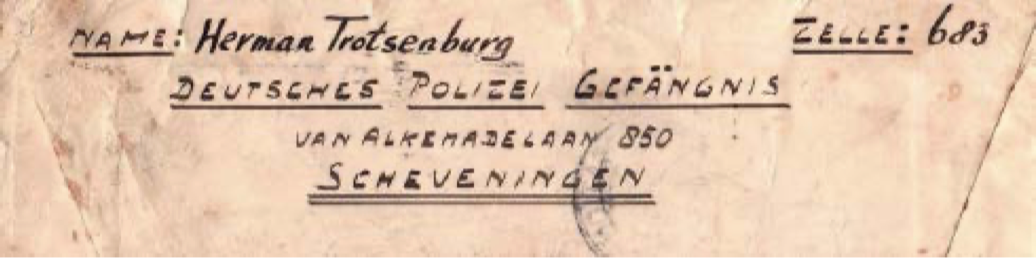 NAME: Herman Trotsenburg ZELLE: 683
DEUTSCHES POLIZEI GEFÄNGNIS
VAN ALKEMADELAAN 850
SCHEVENINGEN